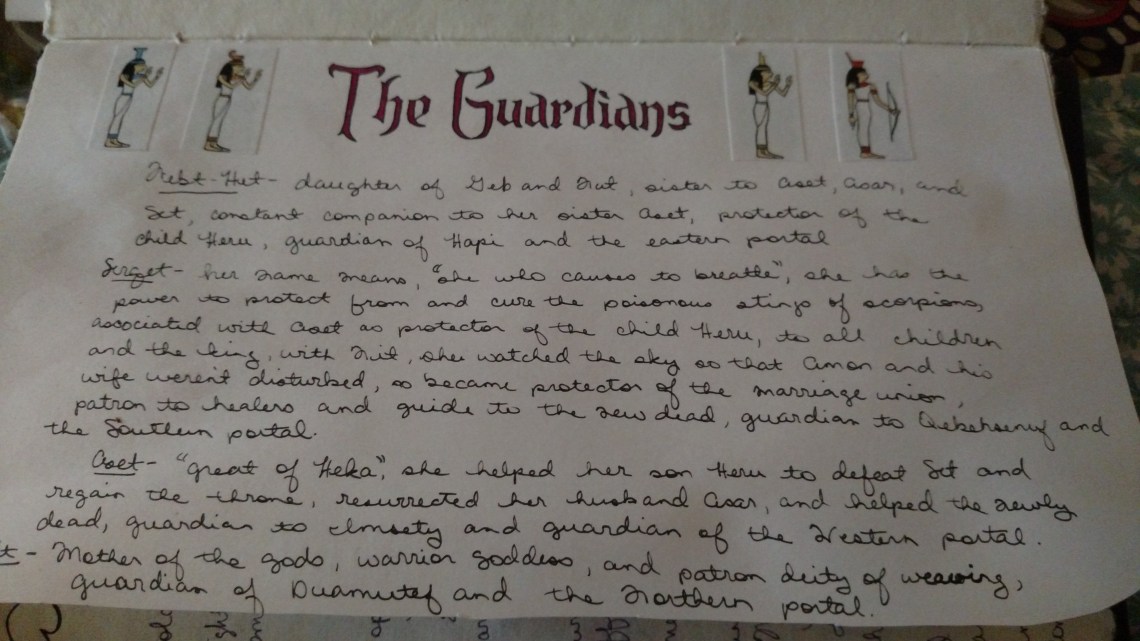 The Guardians
Nebt-Het- daughter of Geb and Nut, sister to Aset, Asar, and
Set, constant companion to her sister Aset, protector of the
child Heru, guardian of Hapi and the eastern portal
Serqet- her name means, "she who causes to breathe", she has the
power to protect from and cure the poisonous stings of scorpions,
associated with Aset as protector of the child Heru, to all children
and the king, with Nit, she watched the sky so that Amon and his
wife weren't disturbed, so became protector of the marriage union,
patron to healers and guide to the new dead, guardian to Qebehsenuf and
the Southern portal.
Aset- "great of Heka", she helped her son Heru to defeat Set and
regain the throne, resurrected her husband Asar, and helped the newly
dead, guardian to Imsety and guardian of the Western portal.
t- Mother of the gods, warrior goddess, and patron deity of weaving,
guardian of Duamutef and the Northern portal.